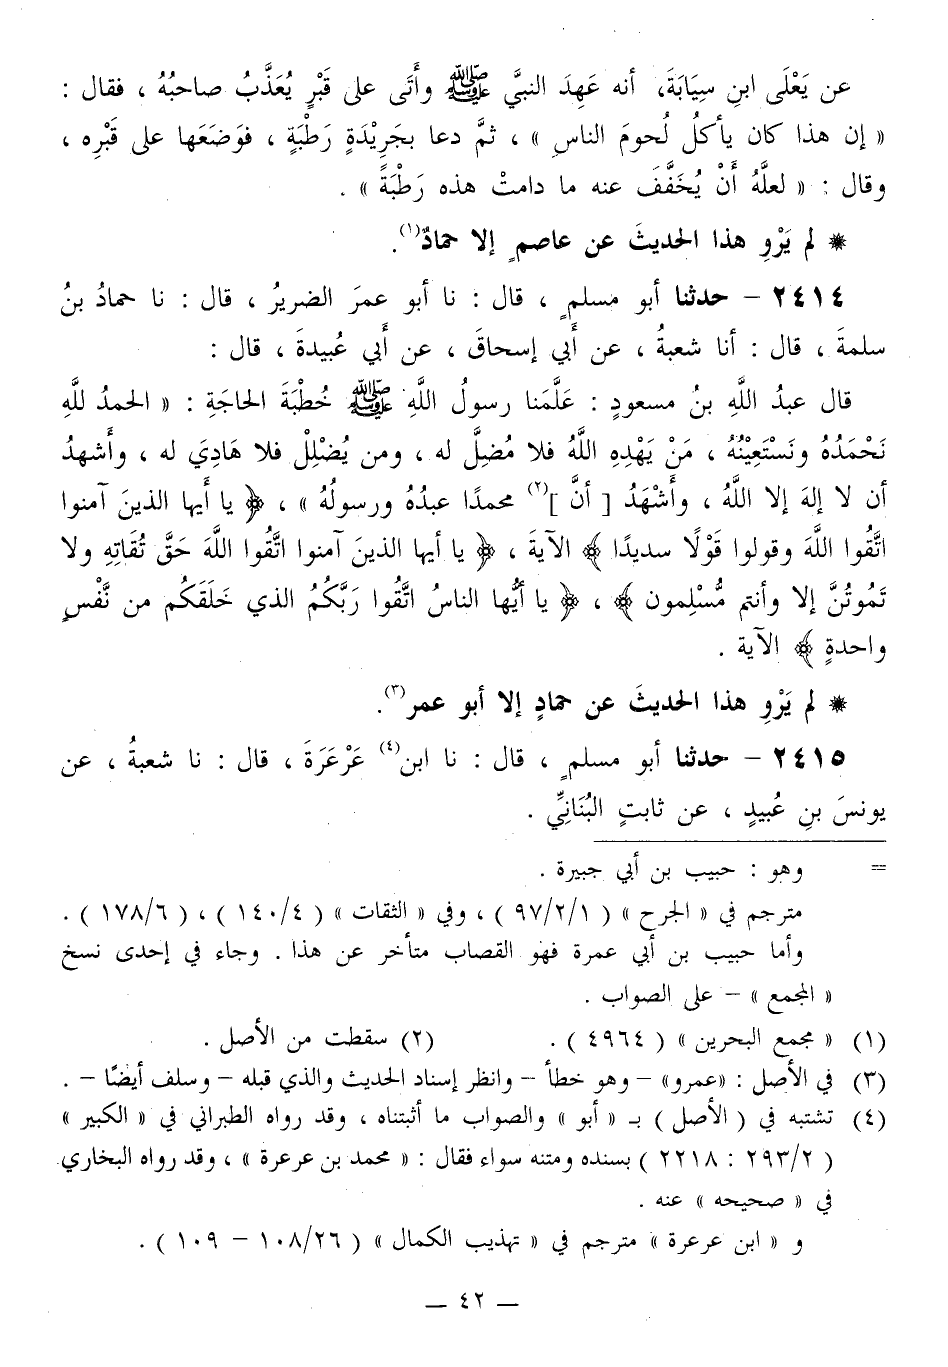 عن يَعْلَى ابنِ سِيَابَةَ، أنه عَهِدَ النبيَّ ﷺ وأَتَى على قَبْرٍ يُعَذَّبُ صاحبُهُ ، فقال :
« إن هذا كان يأكلُ لُحومَ الناسِ » ، ثمَّ دعا بجَرِيْدَةٍ رَطْبَةٍ ، فوَضَعَها على قَبْرِه ،
وقال : « لعلَّهُ أَنْ يُخَفَّفَ عنه ما دامتْ هذه رَطْبَةً » .
* لم يَرْوِ هذا الحديثَ عن عاصمٍ إلا حمادٌ(١).
٢٤١٤ - حدثنا أبو مسلمٍ ، قال : نا أبو عمرَ الضريرُ ، قال : نا حمادُ بنُ
سلمةَ ، قال : أنا شعبةُ ، عن أَبي إسحاقَ ، عن أَبي عُبيدةَ ، قال :
قال عبدُ اللَّهِ بنُ مسعودٍ : عَلَّمَنا رسولُ اللَّهِ ﷺ خُطْبَةَ الحاجَةِ : « الحمدُ للَّهِ
نَحْمَدُهُ ونَسْتَعِيْنُهُ ، مَنْ يَهْدِهِ اللَّهُ فلا مُضِلَّ له ، ومن يُضْلِلْ فلا هَادِيَ له ، وأَشهدُ
أن لا إلهَ إلا اللَّهُ ، وأَشْهَدُ [ أنَّ ](٢) محمدًا عبدُهُ ورسولُهُ » ، ﴿ يا أَيها الذينَ آمنوا
اتَّقُوا اللَّهَ وقولوا قَوْلًا سديدًا ﴾ الآيةَ ، ﴿ يا أيها الذينَ آمنوا اتَّقُوا اللَّهَ حَقَّ تُقَاتِهِ ولا
تَمُوتُنَّ إلا وأنتم مُّسْلِمون ﴾ ، ﴿ يا أيُّها الناسُ اتَّقُوا رَبَّكُمُ الذي خَلَقَكُم من نَّفْسٍ
واحدةٍ ﴾ الآية .
* لم يَرْوِ هذا الحديثَ عن حمادٍ إلا أبو عمر(٣).
٢٤١٥ - حدثنا أبو مسلمٍ ، قال : نا ابن(٤) عَرْعَرَةَ ، قال : نا شعبةُ ، عن
يونسَ بنِ عُبيدٍ ، عن ثابتٍ البُنَانِّي .
= وهو : حبيب بن أبي جبيرة .
مترجم في « الجرح » ( ٩٧/٢/١ ) ، وفي « الثقات » ( ١٤٠/٤ ) ، ( ١٧٨/٦ ) .
وأما حبيب بن أبي عمرة فهو القصاب متأخر عن هذا . وجاء في إحدى نسخ
« المجمع » - على الصواب .
(١) « مجمع البحرين » ( ٤٩٦٤ ) . (٢) سقطت من الأصل .
(٣) في الأصل : «عمرو» - وهو خطأ - وانظر إسناد الحديث والذي قبله - وسلف أيضًا - .
(٤) تشتبه في ( الأصل ) بـ « أبو » والصواب ما أثبتناه ، وقد رواه الطبراني في « الكبير »
( ٢٩٣/٢ : ٢٢١٨ ) بسنده ومتنه سواء فقال : « محمد بن عرعرة » ، وقد رواه البخاري
في « صحيحه » عنه .
و « ابن عرعرة » مترجم في « تهذيب الكمال » ( ١٠٨/٢٦ - ١٠٩ ) .
- ٤٢ -